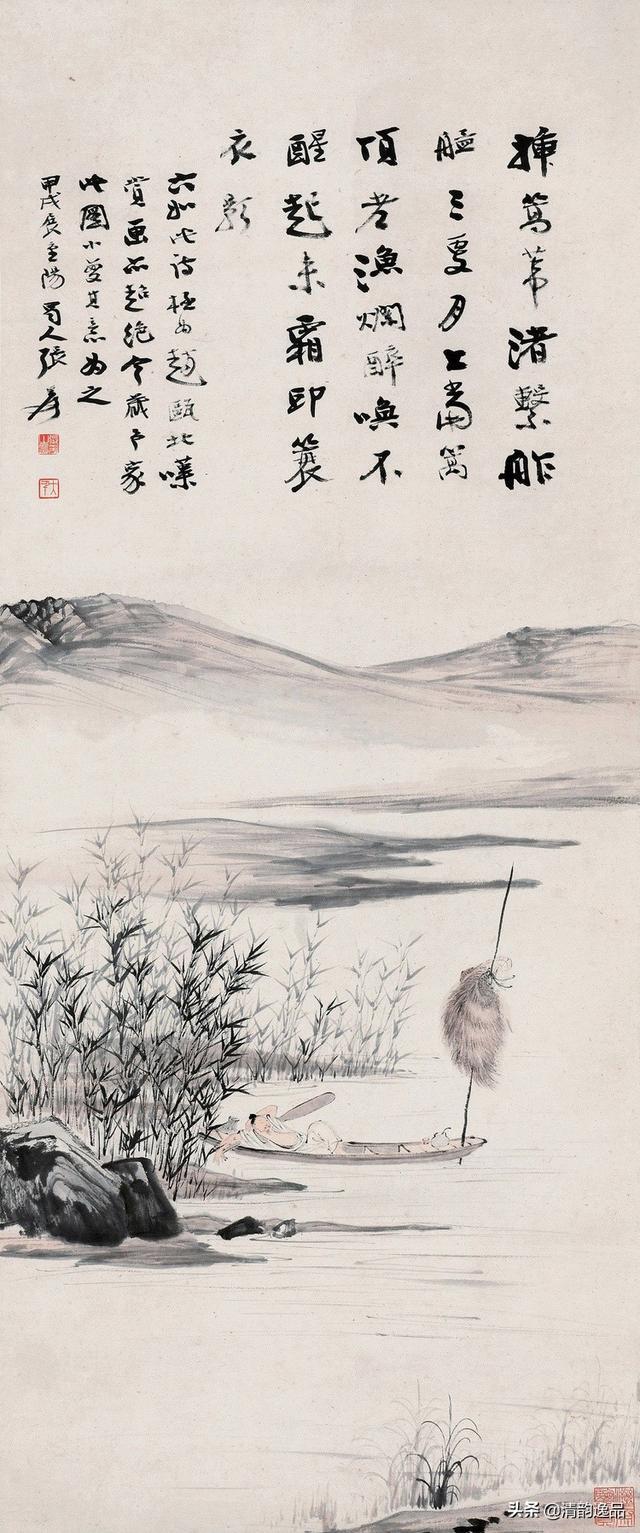 插篙葦渚繫舴
艋三更月上當篙
頂老漁爛醉喚不
醒起來霜印蓑
衣影
六如此詩極為趙甌北嘆
賞畫亦超絕今藏予家
此圖小變其意為之
甲戌展重陽蜀人張爰
大千
头条 @清韵逸品